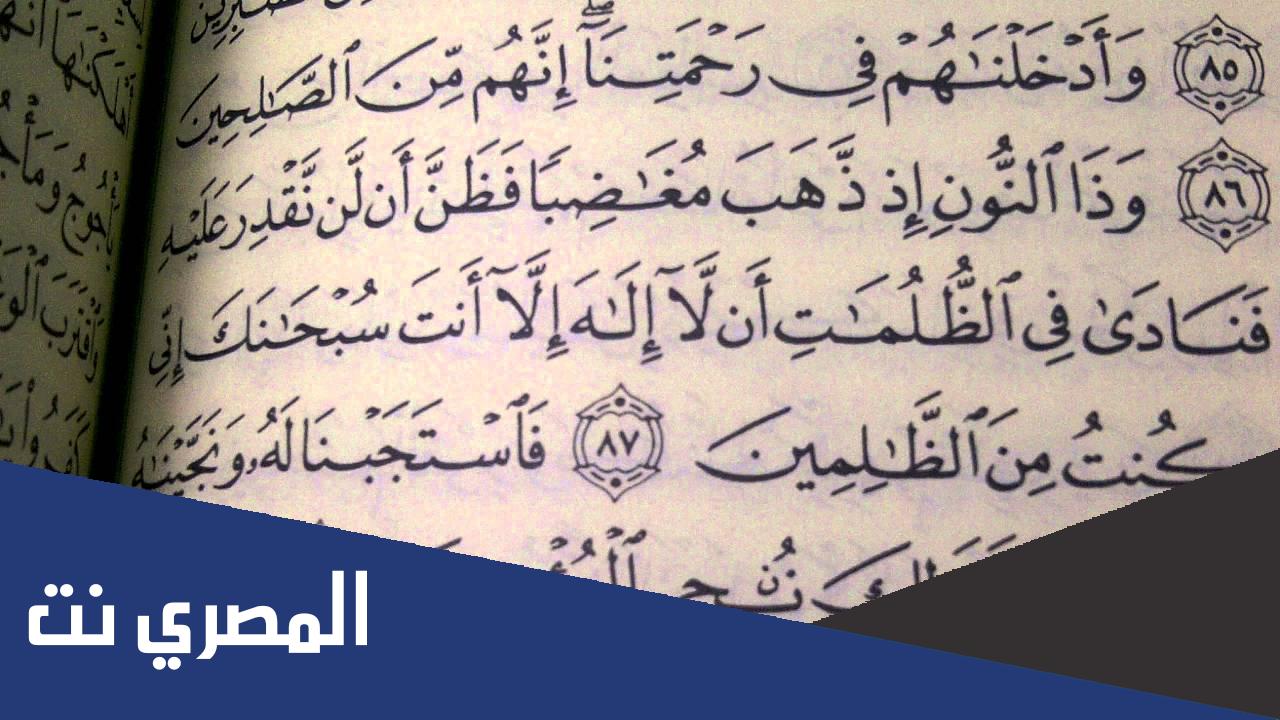 ٨٥ وَأَدْخَلْنَٰهُمْ فِى رَحْمَتِنَآ ۖ إِنَّهُم مِّنَ ٱلصَّٰلِحِينَ
٨٦ وَذَا ٱلنُّونِ إِذ ذَّهَبَ مُغَٰضِبًا فَظَنَّ أَن لَّن نَّقْدِرَ عَلَيْهِ
فَنَادَىٰ فِى ٱلظُّلُمَٰتِ أَن لَّآ إِلَٰهَ إِلَّآ أَنتَ سُبْحَٰنَكَ إِنِّى
كُنتُ مِنَ ٱلظَّٰلِمِينَ ٨٧ فَٱسْتَجَبْنَا لَهُۥ وَنَجَّيْنَٰهُ
المصري نت